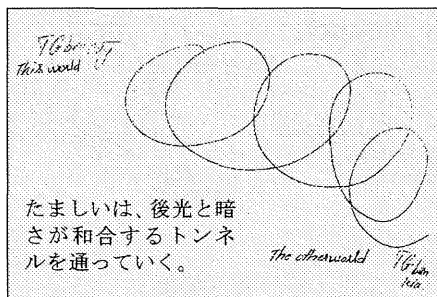 This world
たましいは、後光と暗
さが和合するトンネ
ルを通っていく。
The otherworld